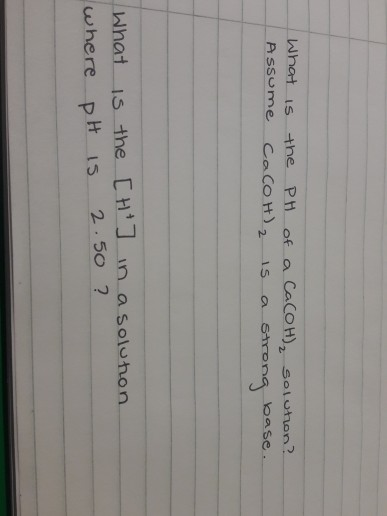 What is the pH of a Ca(OH)2 solution?
Assume Ca(OH)2 is a strong base.
What is the [H+] in a solution
where pH is 2.50 ?